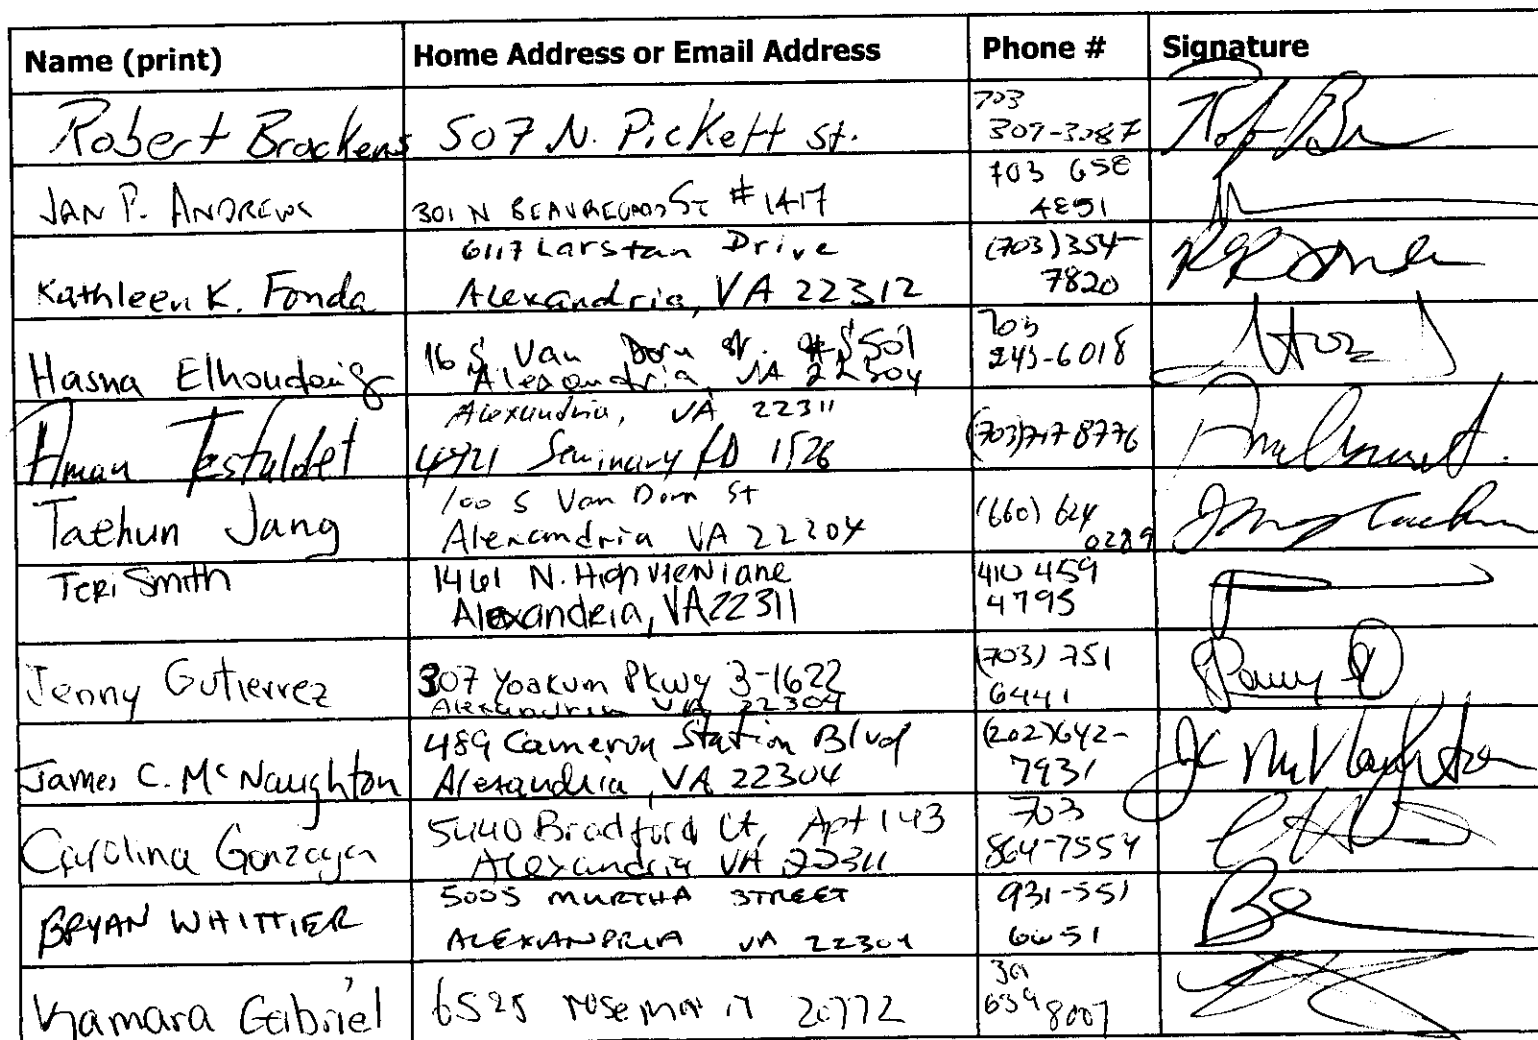 Name (print) Home Address or Email Address Phone # Signature
Robert Brackens 507 N. Pickett St. 703
307-3087
JAN P. ANDREWS 301 N BEAUREGARD ST #1417 703 658
4851
Kathleen K. Fonda 6117 Larstan Drive
Alexandria, VA 22312
(703)354-
7820
Hasna 16 S Van Dorn St.
Alexandria, VA 22304
703
245-6018
Aman Tesfaldet Alexandria, VA 22311
4921 Seminary RD 1526
(703)717 8776
Taehun Jang 100 S Van Dorn St
Alexandria VA 22204
(660) 624
0289
Teri Smith 1461 N. Highview Lane
Alexandria, VA 22311
410 459
4795
Jenny Gutierrez 307 Yoakum Pkwy 3-1622
Alexandria VA, 22304
(703) 751
6441
James C. McNaughton 489 Cameron Station Blvd
Alexandria, VA 22304
(202)642-
7931
Carolina Gonzaga 5440 Bradford Ct, Apt 143
Alexandria VA 22311
703
864-7554
BRYAN WHITTIER 5005 MURTHA STREET
ALEXANDRIA VA 22304
931-551
6651
Kamara Gabriel 6525 20772
301
639 8007